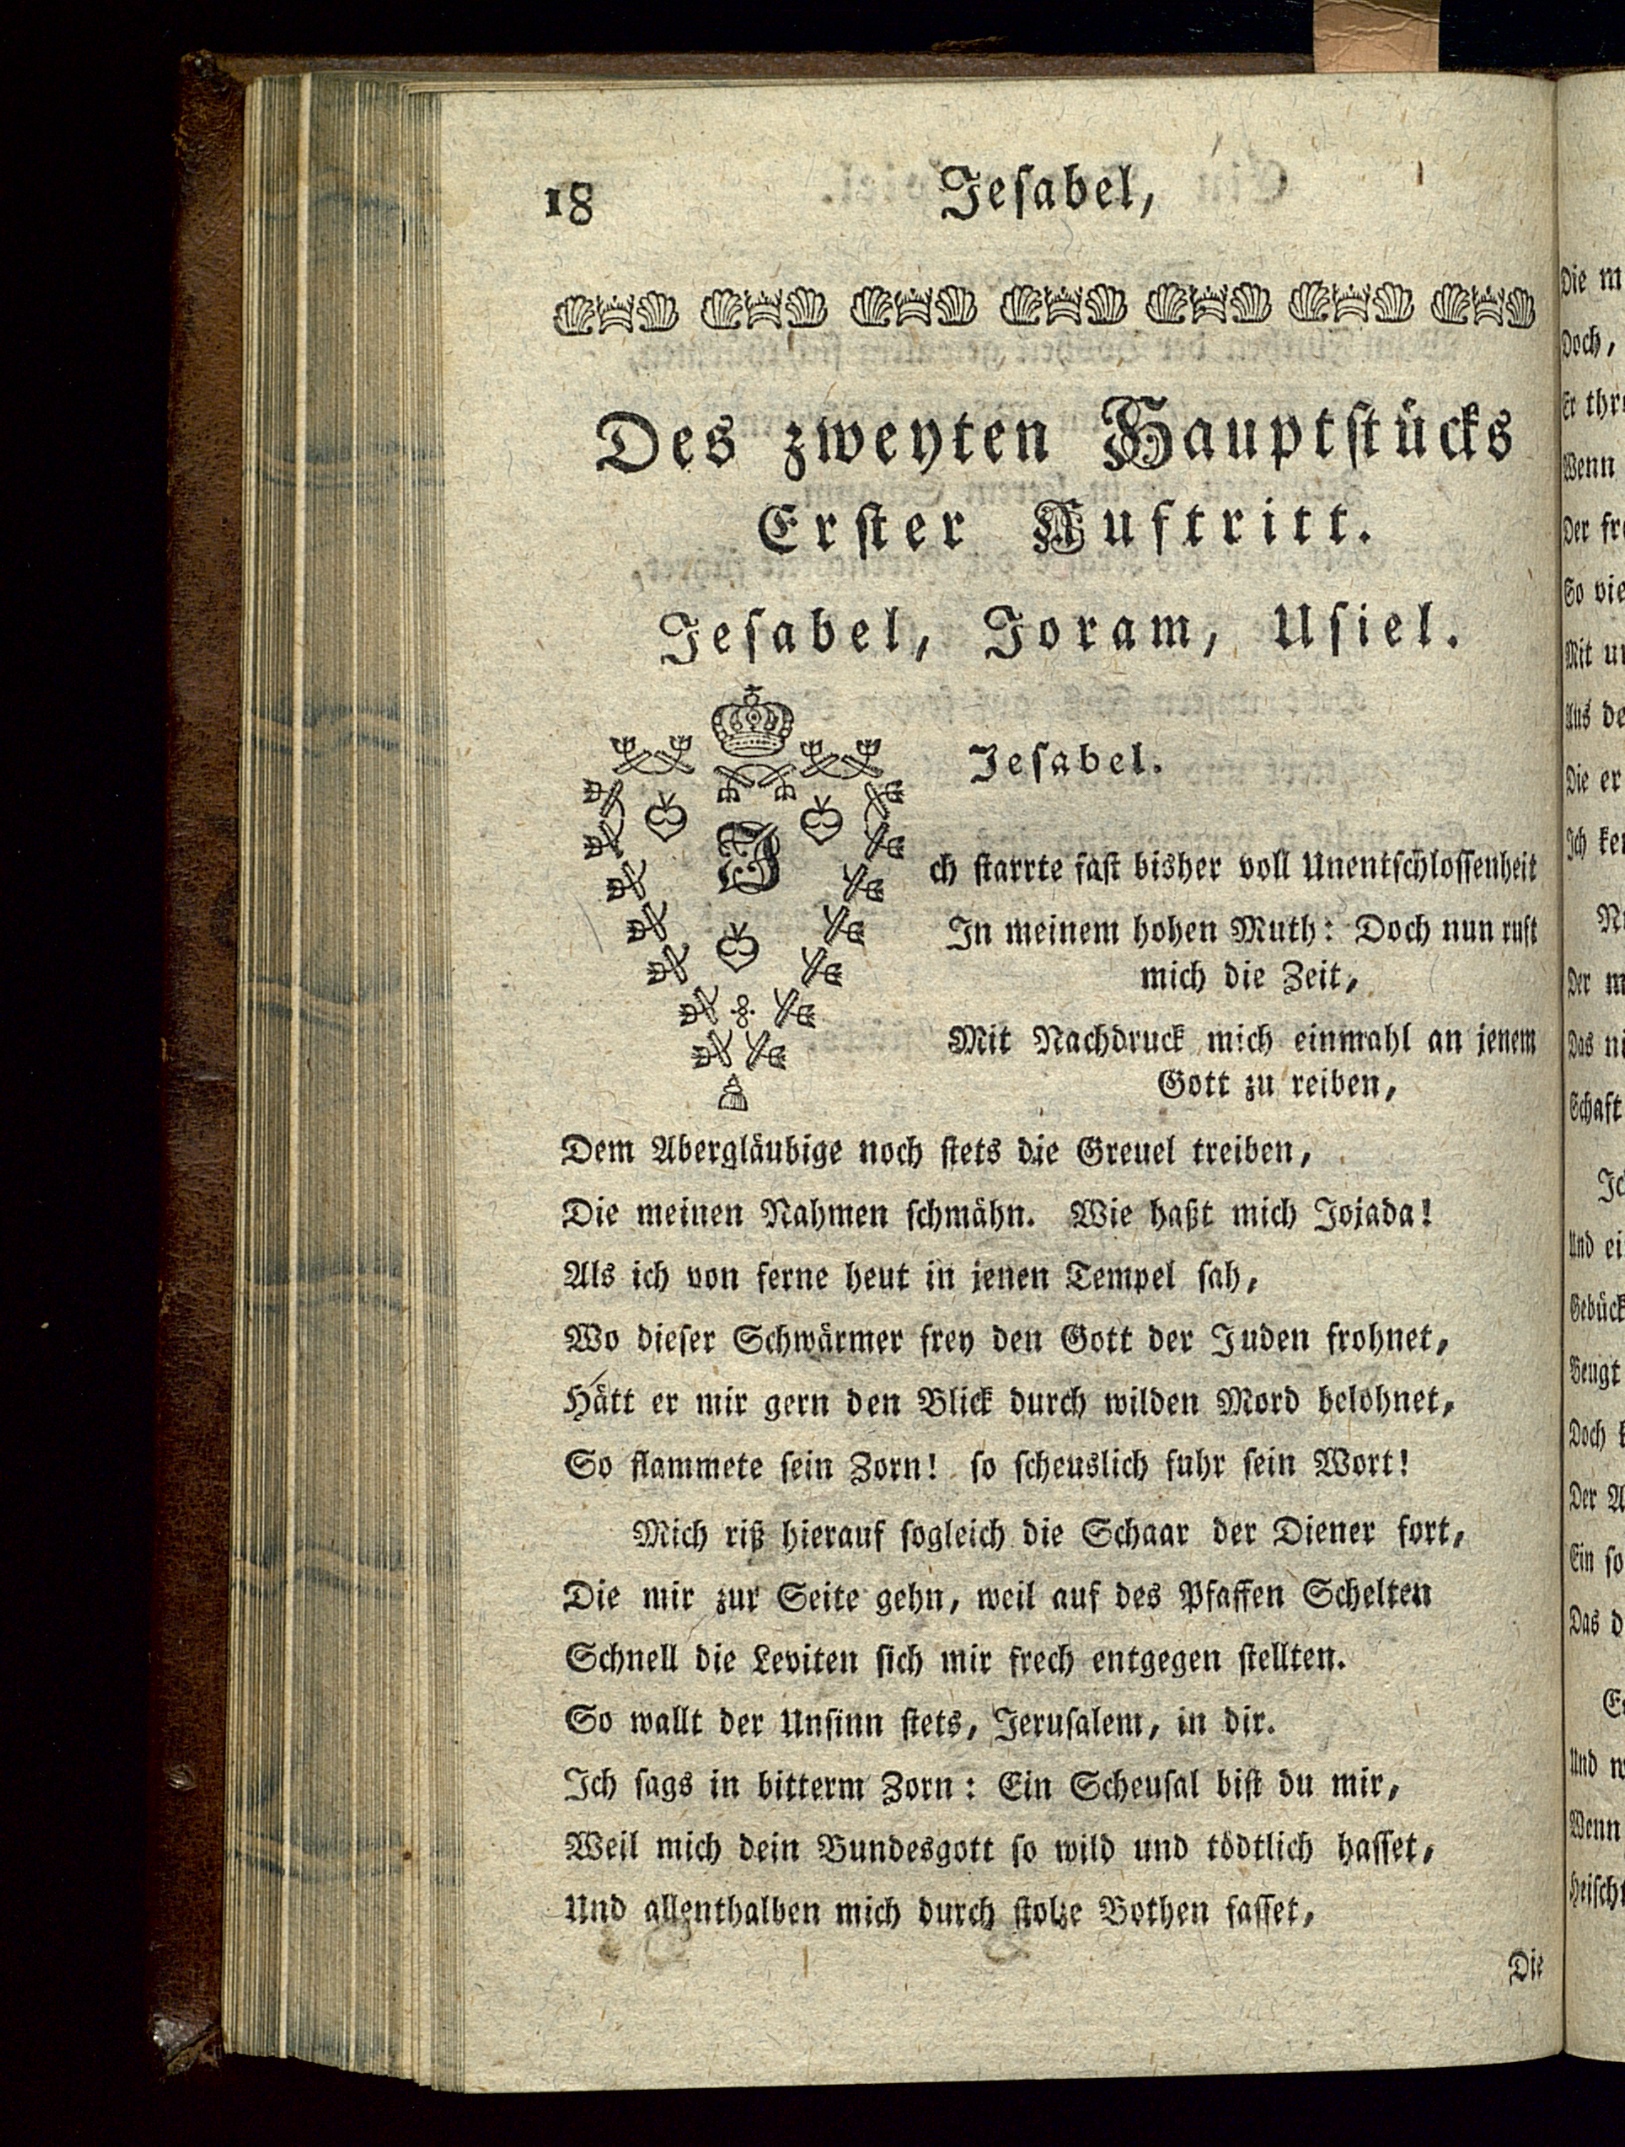 18 Jesabel,
Des zweyten Hauptstücks
Erster Auftritt.
Jesabel, Joram, Usiel.
Jesabel.
Ich starrte fast bisher voll Unentschlossenheit
In meinem hohen Muth: Doch nun ruft
mich die Zeit,
Mit Nachdruck mich einmahl an jenem
Gott zu reiben,
Dem Abergläubige noch stets die Greuel treiben,
Die meinen Nahmen schmähn. Wie haßt mich Jojada!
Als ich von ferne heut in jenen Tempel sah,
Wo dieser Schwärmer frey den Gott der Juden frohnet,
Hätt er mir gern den Blick durch wilden Mord belohnet,
So flammete sein Zorn! so scheuslich fuhr sein Wort!
Mich riß hierauf sogleich die Schaar der Diener fort,
Die mir zur Seite gehn, weil auf des Pfaffen Schelten
Schnell die Leviten sich mir frech entgegen stellten.
So wallt der Unsinn stets, Jerusalem, in dir.
Ich sags in bitterm Zorn: Ein Scheusal bist du mir,
Weil mich dein Bundesgott so wild und tödtlich hasset,
Und allenthalben mich durch stolze Bothen fasset,
Die